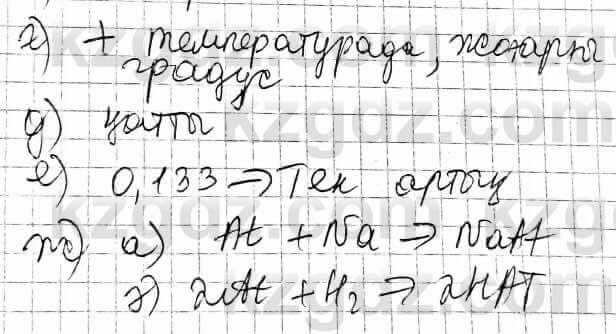 г) + температурада, жоғары
градус
д) қатты
е) 0,133 → Тек артық
ж) а) At + Na → NaAt
г) 2At + H₂ → 2HAT
kzgdz.com